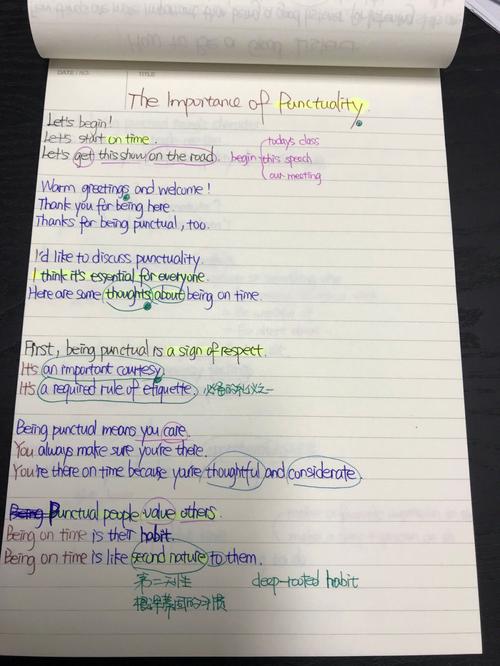 How to Be a Good Listener
DATE / NO.
TITLE
The Importance of Punctuality.
Let's begin!
Let's start on time.
Let's get this show on the road. begin
today's class
this speech
our meeting
Warm greetings and welcome!
Thank you for being here.
Thanks for being punctual, too.
I'd like to discuss punctuality.
I think it's essential for everyone.
Here are some thoughts about being on time.
First, being punctual is a sign of respect.
It's an important courtesy.
It's a required rule of etiquette. 必备的礼仪之一
Being punctual means you care.
You always make sure you're there.
You're there on time because you're thoughtful and considerate.
Being Punctual people value others.
Being on time is their habit.
Being on time is like second nature to them.
第二天性 deep-rooted habit
根深蒂固的习惯